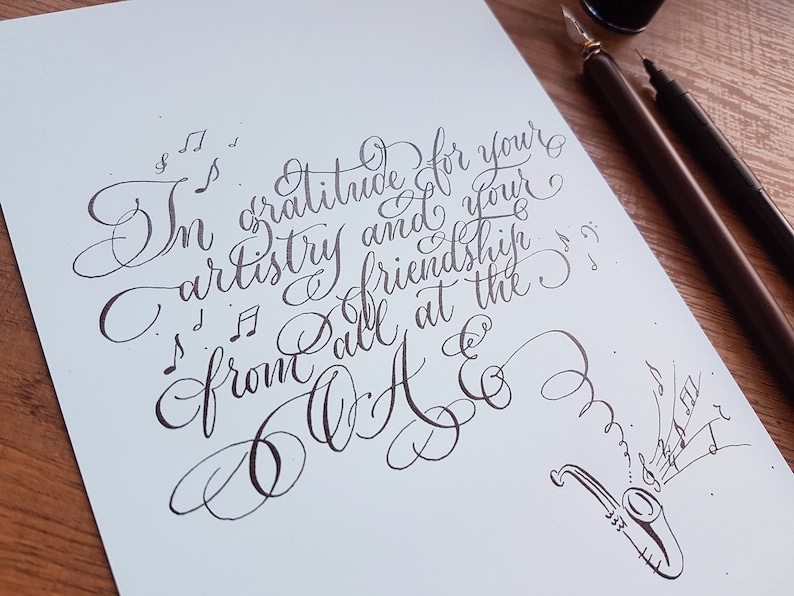 In gratitude for your
artistry and your
friendship
from all at the
OAE